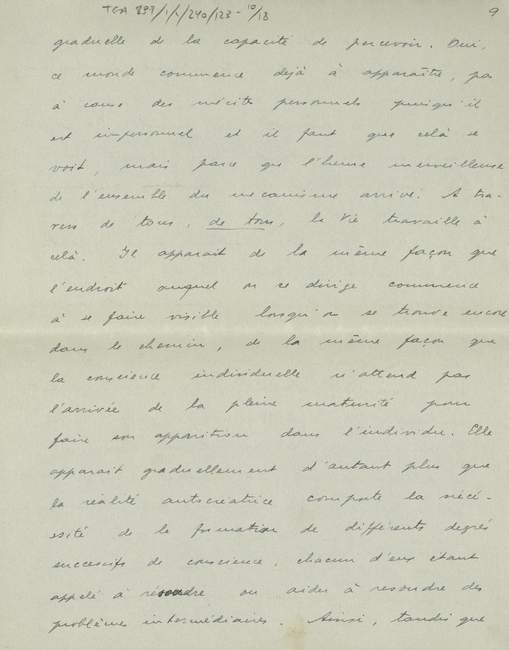 TGA 897/1/1/240/123 - 10/18
9
graduelle de la capacité de percevoir. Oui,
ce monde commence déjà à apparaître, pas
à cause des mérites personnels puisqu'il
est impersonnel et il faut que celà se
voit, mais parce que l'heure merveilleuse
de l'ensemble du mecanisme arrive. A tra-
vers de tous, de tous, la Vie travaille à
celà. Il apparait de la même façon que
l'endroit auquel on se dirige commence
à se faire visible lorsqu'on se trouve encore
dans le chemin, de la même façon que
la conscience individuelle n'attend pas
l'arrivée de la pleine maturité pour
faire son apparition dans l'individu. Elle
apparait graduellement d'autant plus que
la réalité autocreatrice comporte la néce-
ssité de la formation de différents degrés
successifs de conscience, chacun d'eux étant
appelé à résoudre ou aider à resoudre des
problèmes intermédiaires. Ainsi, tandis que